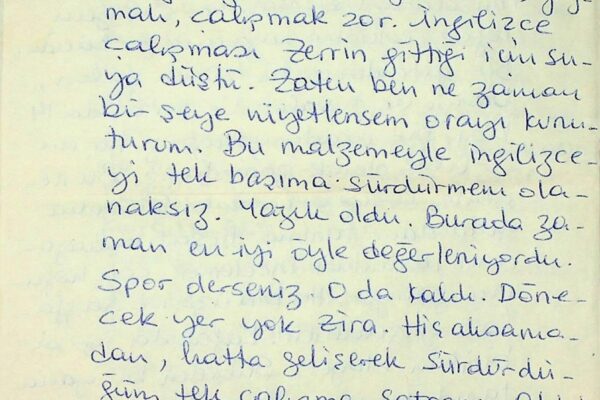 malı, çalışmak zor. İngilizce
çalışması Zerrin gittiği için su-
ya düştü. Zaten ben ne zaman
bir şeye niyetlensem orayı kuru-
turum. Bu malzemeyle ingilizce-
yi tek başıma sürdürmem ola-
naksız. Yazık oldu. Burada za-
man en iyi öyle değerleniyordu.
Spor derseniz o da kaldı. Döne-
cek yer yok zira. Hiç aksama-
dan, hatta gelişerek sürdürdü-
ğüm tek çalışma